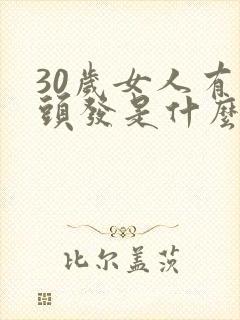 30歲女人有
頭發是什麼
比尔盖茨